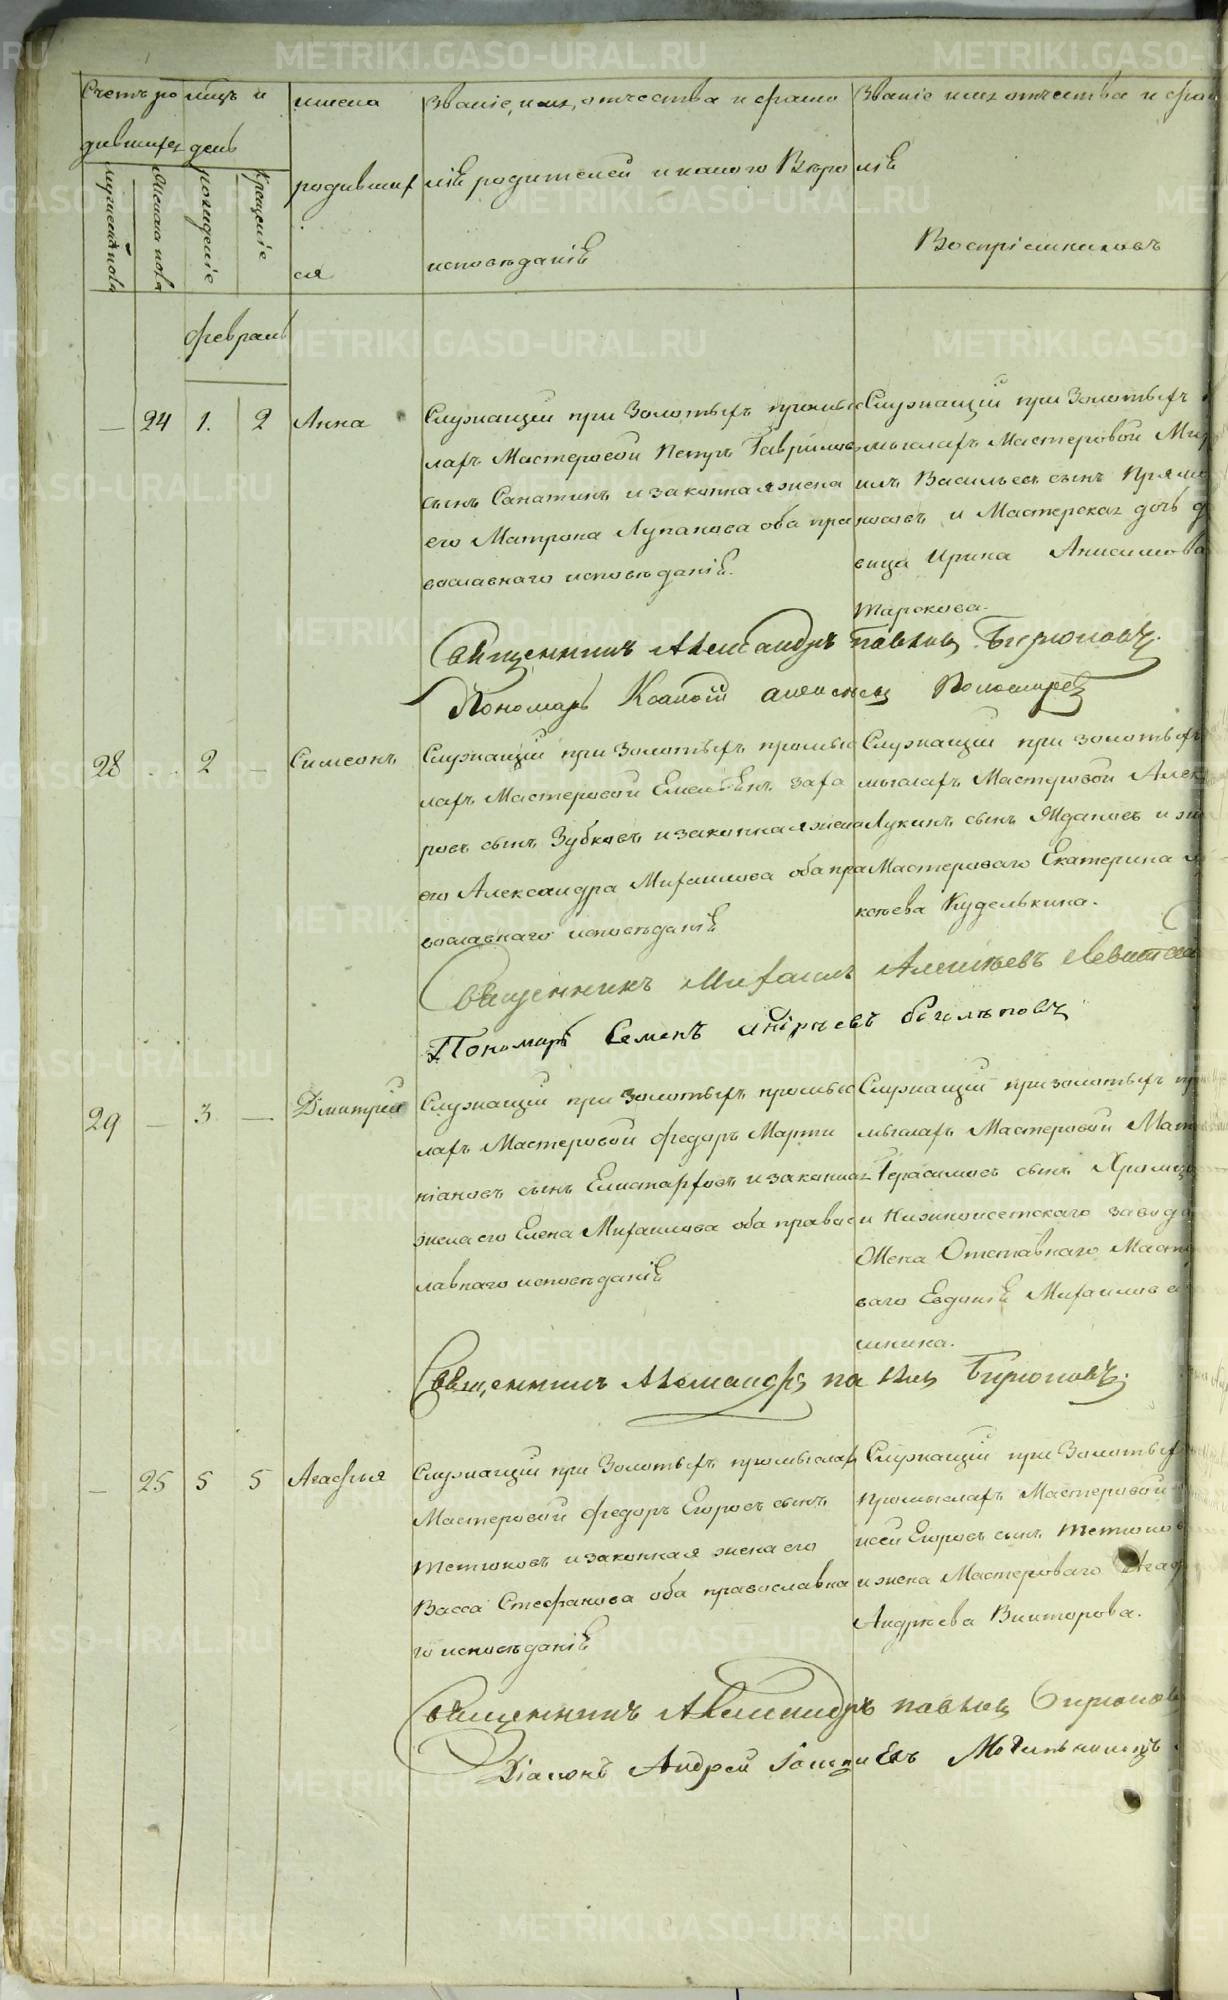 METRIKI.GASO-URAL.RU
Счетъ ро
дившихся
мужеска пола
женска пола
мѣсяцъ и
день
рожденіе
крещеніе
имена
родивших
ся
Званіе, имя, отчества и фами
ліѣ родителей и какого Вѣро
исповѣданіѣ
Званіе имя отчества и фам
ліѣ
Воспріемниковъ
Февраль
— 24 1. 2 Анна
Служащій при Золотыхъ промыс
лахъ Мастеровой Петръ Гавриловъ
сынъ Сапатинъ и законная жена
его Матрона Лупанова оба пра
вославнаго исповѣданіѣ.
Служащій при Золотыхъ
мыслахъ Мастеровой Мих
илъ Васильевъ сынъ Прямо
носовъ и Мастерская дочь д
вица Ирина Анисимова
Шарокова.
Священникъ Александръ Павловъ Бирюковъ.
Пономарь Алексѣевъ Пономаревъ
28 2 — Симеонъ
Служащій при Золотыхъ промыс
лахъ Мастеровой Емельянъ Заха
ровъ сынъ Зубковъ и законная жена
его Александра Михаилова оба пра
вославнаго исповѣданіѣ
Служащій при золотыхъ
мыслахъ Мастеровой Алек
Лукинъ сынъ Ждановъ и же
Мастероваго Екатерина
ксѣева Куделькина.
Священникъ Михаилъ Алексѣевъ Левитскі
Пономарь Семенъ Андрѣевъ
29 — 3 — Димитрій
Служащій при Золотыхъ промыс
лахъ Мастеровой Федоръ Марти
ніановъ сынъ Елистарховъ и законная
жена его Елена Михаилова оба правос
лавнаго исповѣданіѣ
Служащій при золотыхъ пр
мыслахъ Мастеровой Мат
Герасимовъ сынъ Хромцо
и Нижноисетскаго завода
Жена Отставнаго Масте
ваго Евдокіѣ Михаилова
шкина.
Священникъ Александръ Павловъ Бирюковъ.
— 25 5 5 Агафия
Служащій при Золотыхъ промыслах
Мастеровой Федоръ Егоровъ сынъ
Тетюковъ и законная жена его
Васса Стефанова оба православна
го исповѣданіѣ
Служащій при Золотых
промыслахъ Мастеровой
ксей Егоровъ сынъ Тетюков
и жена Мастероваго Агаф
Андрѣева Викторова.
Священникъ Александръ Павловъ Бирюков
Діаконъ Андрей Могильниковъ